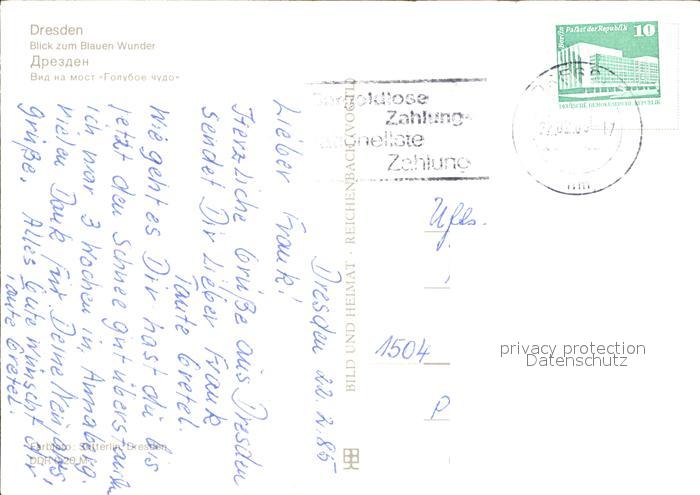 Dresden
Blick zum Blauen Wunder
Дрезден
Вид на мост «Голубое чудо»
Berlin Palast der Republik
10
DEUTSCHE DEMOKRATISCHE REPUBLIK
Zahlung-
Zahlung
17
Dresden 22.2.85
Lieber Frank!
Herzliche Grüße aus Dresden
sendet Dir Lieber Frank
Tante Gretel.
Wie geht es Dir hast du bis
jetzt den Schnee gut überstanden
ich war 3 Wochen in Annaberg.
Vielen Dank für Deine Neujahrs,
grüße. Alles Gute wünscht dir
Tante Gretel.
1504
P
BILD UND HEIMAT · REICHENBACH (VOGTL)
privacy protection
Datenschutz
Farbfoto: Sütterlin, Dresden
DDR 0,20 M